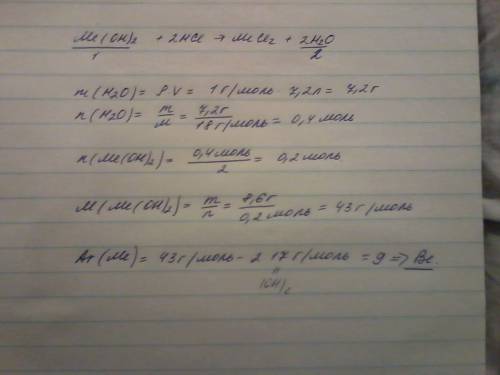 Me(OH)₂ + 2HCl → MeCl₂ + 2H₂O
1 2
m(H₂O) = ρV = 1 г/моль · 7,2л = 7,2г
n(H₂O) = m/M = 7,2г/18г/моль = 0,4 моль
n(Me(OH)₂) = 0,4моль/2 = 0,2 моль
M(Me(OH)₂) = m/n = 8,6г/0,2моль = 43 г/моль
Ar(Me) = 43г/моль - 2 · 17г/моль = 9 => Be.
(OH)₂